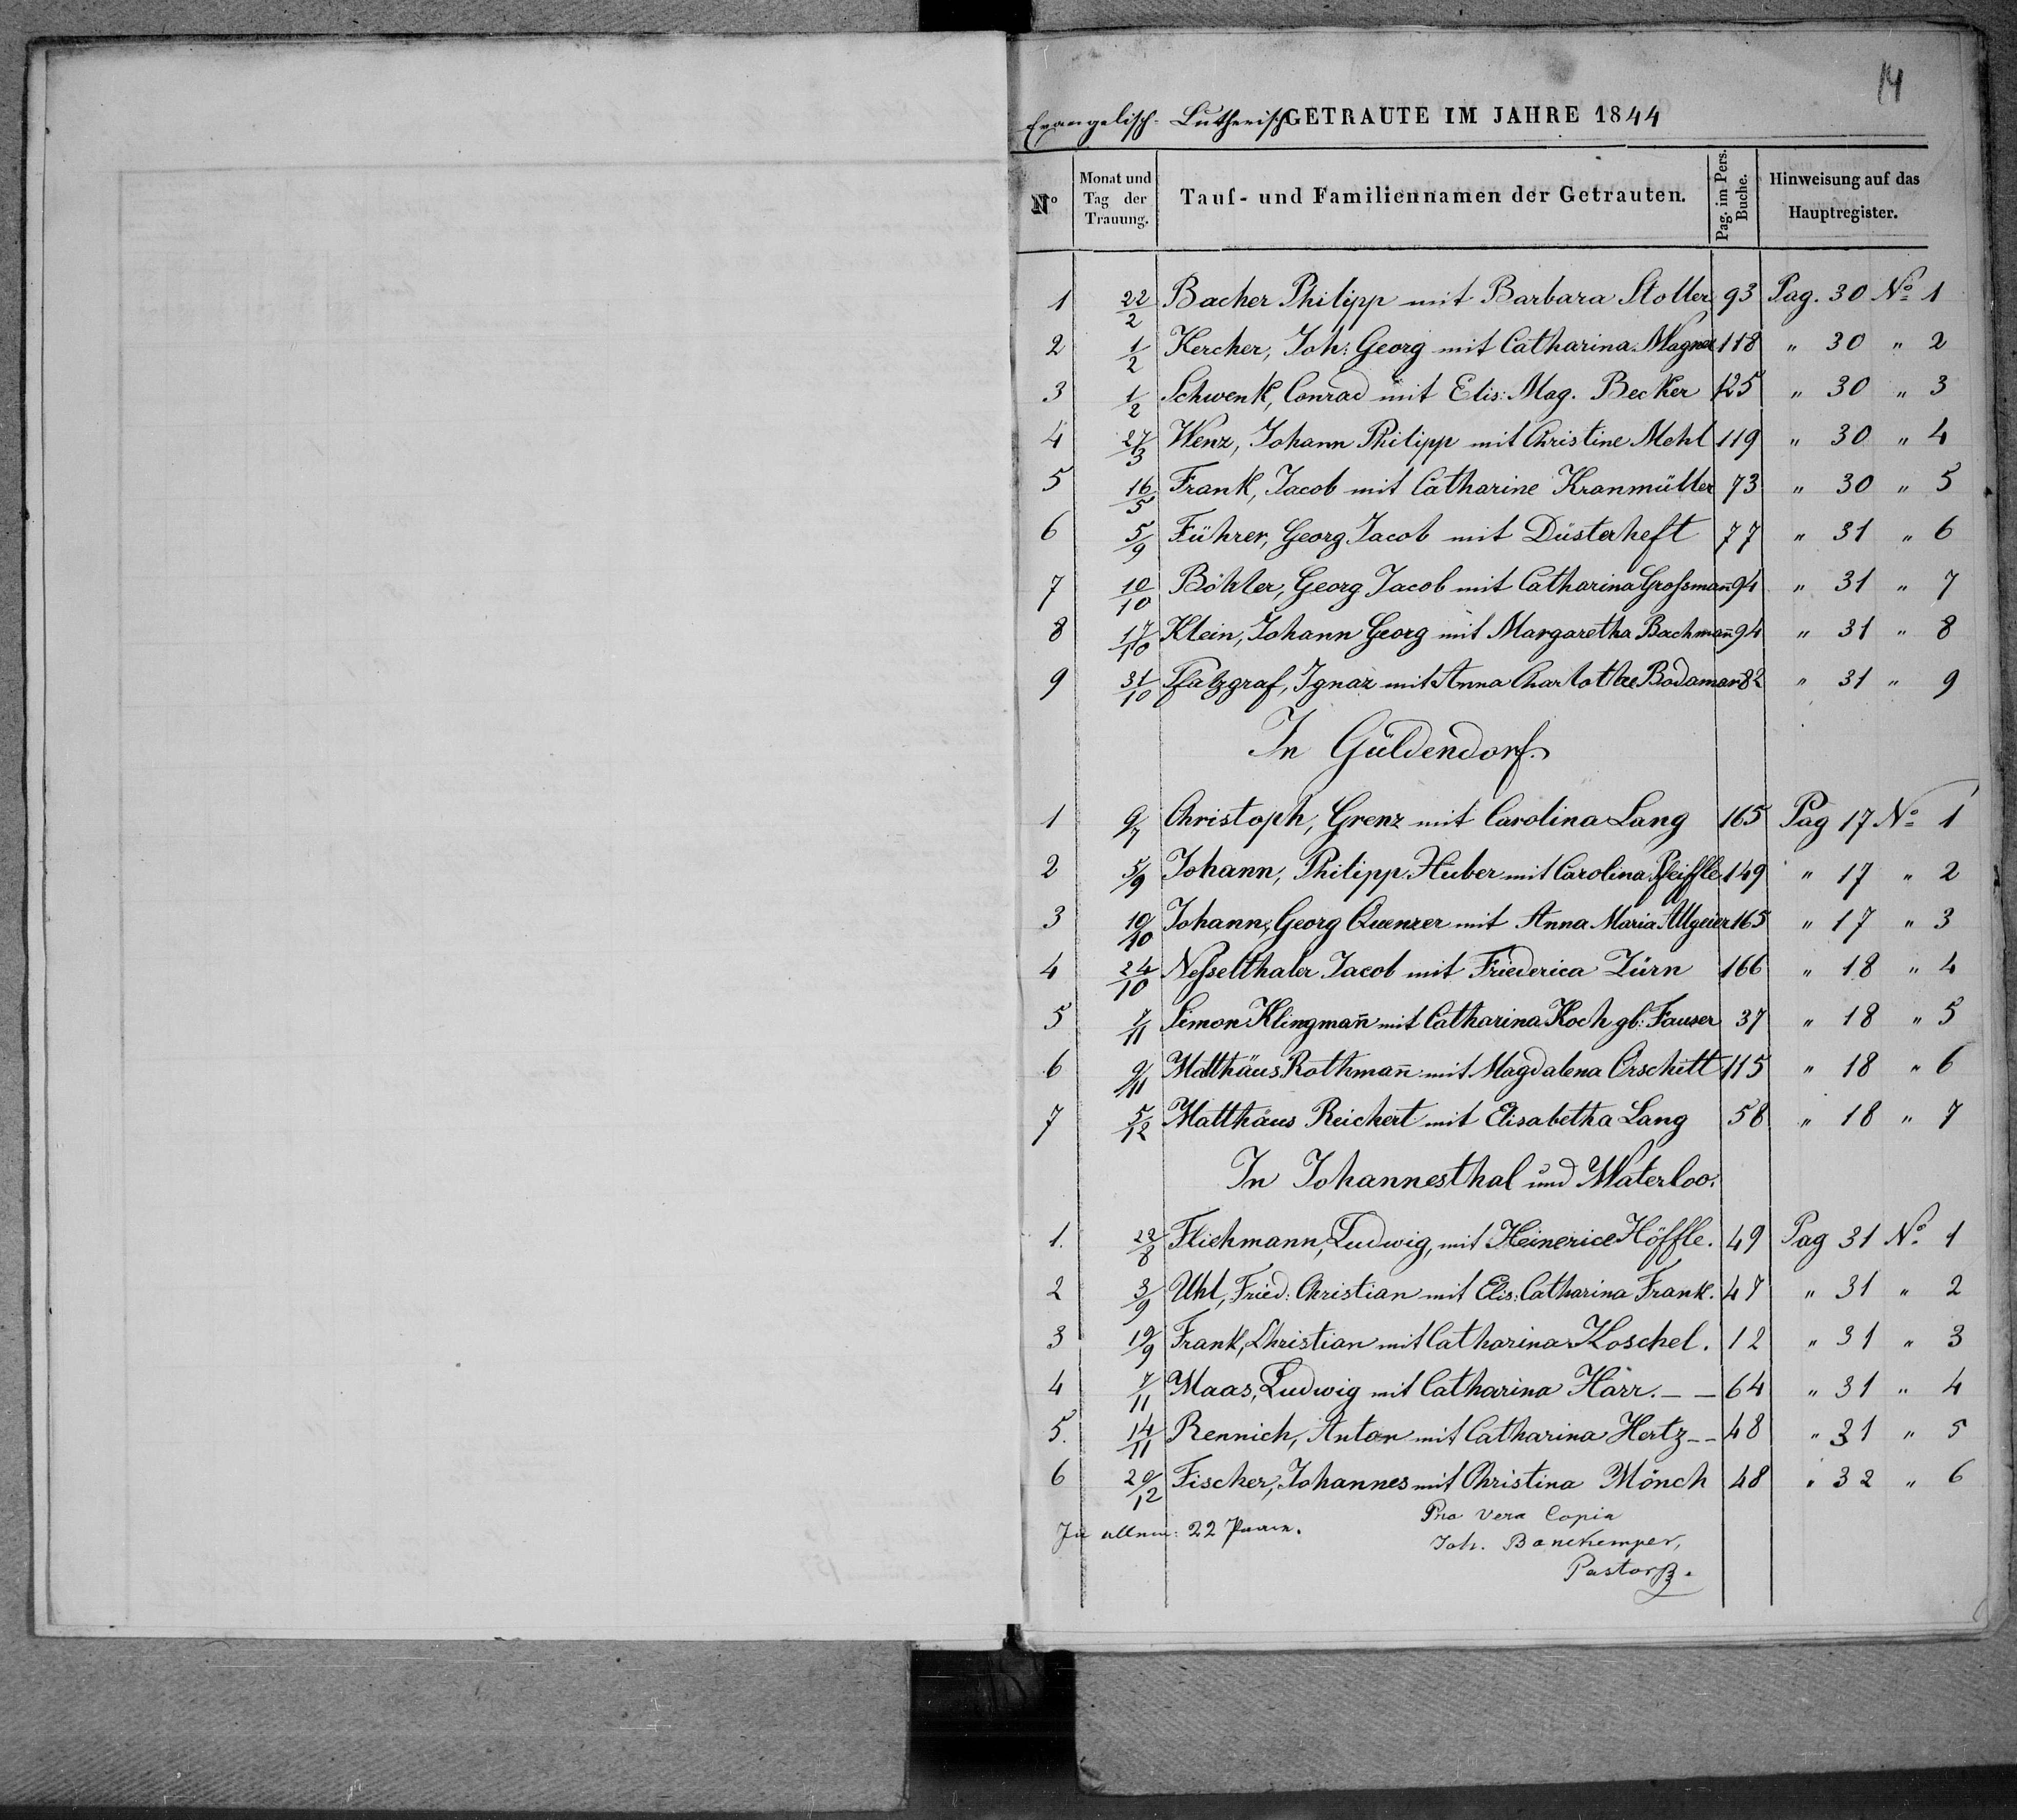 14
Evangelisch-Lutherisch GETRAUTE IM JAHRE 1844
N° Monat und Tag der Trauung. Tauf- und Familiennamen der Getrauten. Pag. im Pers. Buche. Hinweisung auf das Hauptregister.
1 22/2 Bacher Philipp mit Barbara Stoller 93 Pag. 30 No 1
2 1/2 Kercher, Joh: Georg mit Catharina Magner 118 " 30 " 2
3 1/2 Schwenk, Conrad mit Elis: Mag. Becker 125 " 30 " 3
4 27/3 Wenz, Johann Philipp mit Christine Mehl 119 " 30 " 4
5 16/5 Frank, Jacob mit Catharine Kranmüller 73 " 30 " 5
6 5/9 Führer, Georg Jacob mit Düsterheft 77 " 31 " 6
7 10/10 Böhler, Georg Jacob mit Catharina Großmañ 94 " 31 " 7
8 17/10 Klein, Johann Georg mit Margaretha Bachmañ 94 " 31 " 8
9 31/10 Pfalzgraf, Ignaz mit Anna Charlothe Bodamar 82 " 31 " 9
In Güldendorf.
1 9/7 Christoph, Grenz mit Carolina Lang 165 Pag 17 No 1
2 5/9 Johann, Philipp Huber mit Carolina Pfeiffle 149 " 17 " 2
3 10/10 Johann, Georg Quenzer mit Anna Maria Allgeier 165 " 17 " 3
4 24/10 Neßelthaler Jacob mit Friederica Zürn 166 " 18 " 4
5 7/11 Simon Klingmañ mit Catharina Koch gb: Fauser 37 " 18 " 5
6 9/11 Matthäus Rothmañ mit Magdalena Orschitt 115 " 18 " 6
7 5/12 Matthäus Reichert mit Elisabetha Lang 58 " 18 " 7
In Johannesthal und Waterloo.
1. 22/8 Fliehmann, Ludwig, mit Heinerice Höffle. 49 Pag 31 No 1
2 3/9 Uhl, Fried: Christian mit Elis: Catharina Frank. 47 " 31 " 2
3 19/9 Frank, Christian mit Catharina Koschel. 12 " 31 " 3
4 7/11 Maas, Ludwig mit Catharina Härr. – – 64 " 31 " 4
5. 14/11 Rennich, Anton mit Catharina Hertz – – 48 " 31 " 5
6 20/12 Fischer, Johannes mit Christina Mönch 48 " 32 " 6
In allem: 22 Paare. Pro vera Copia
Joh. Bonekemper,
Pastor